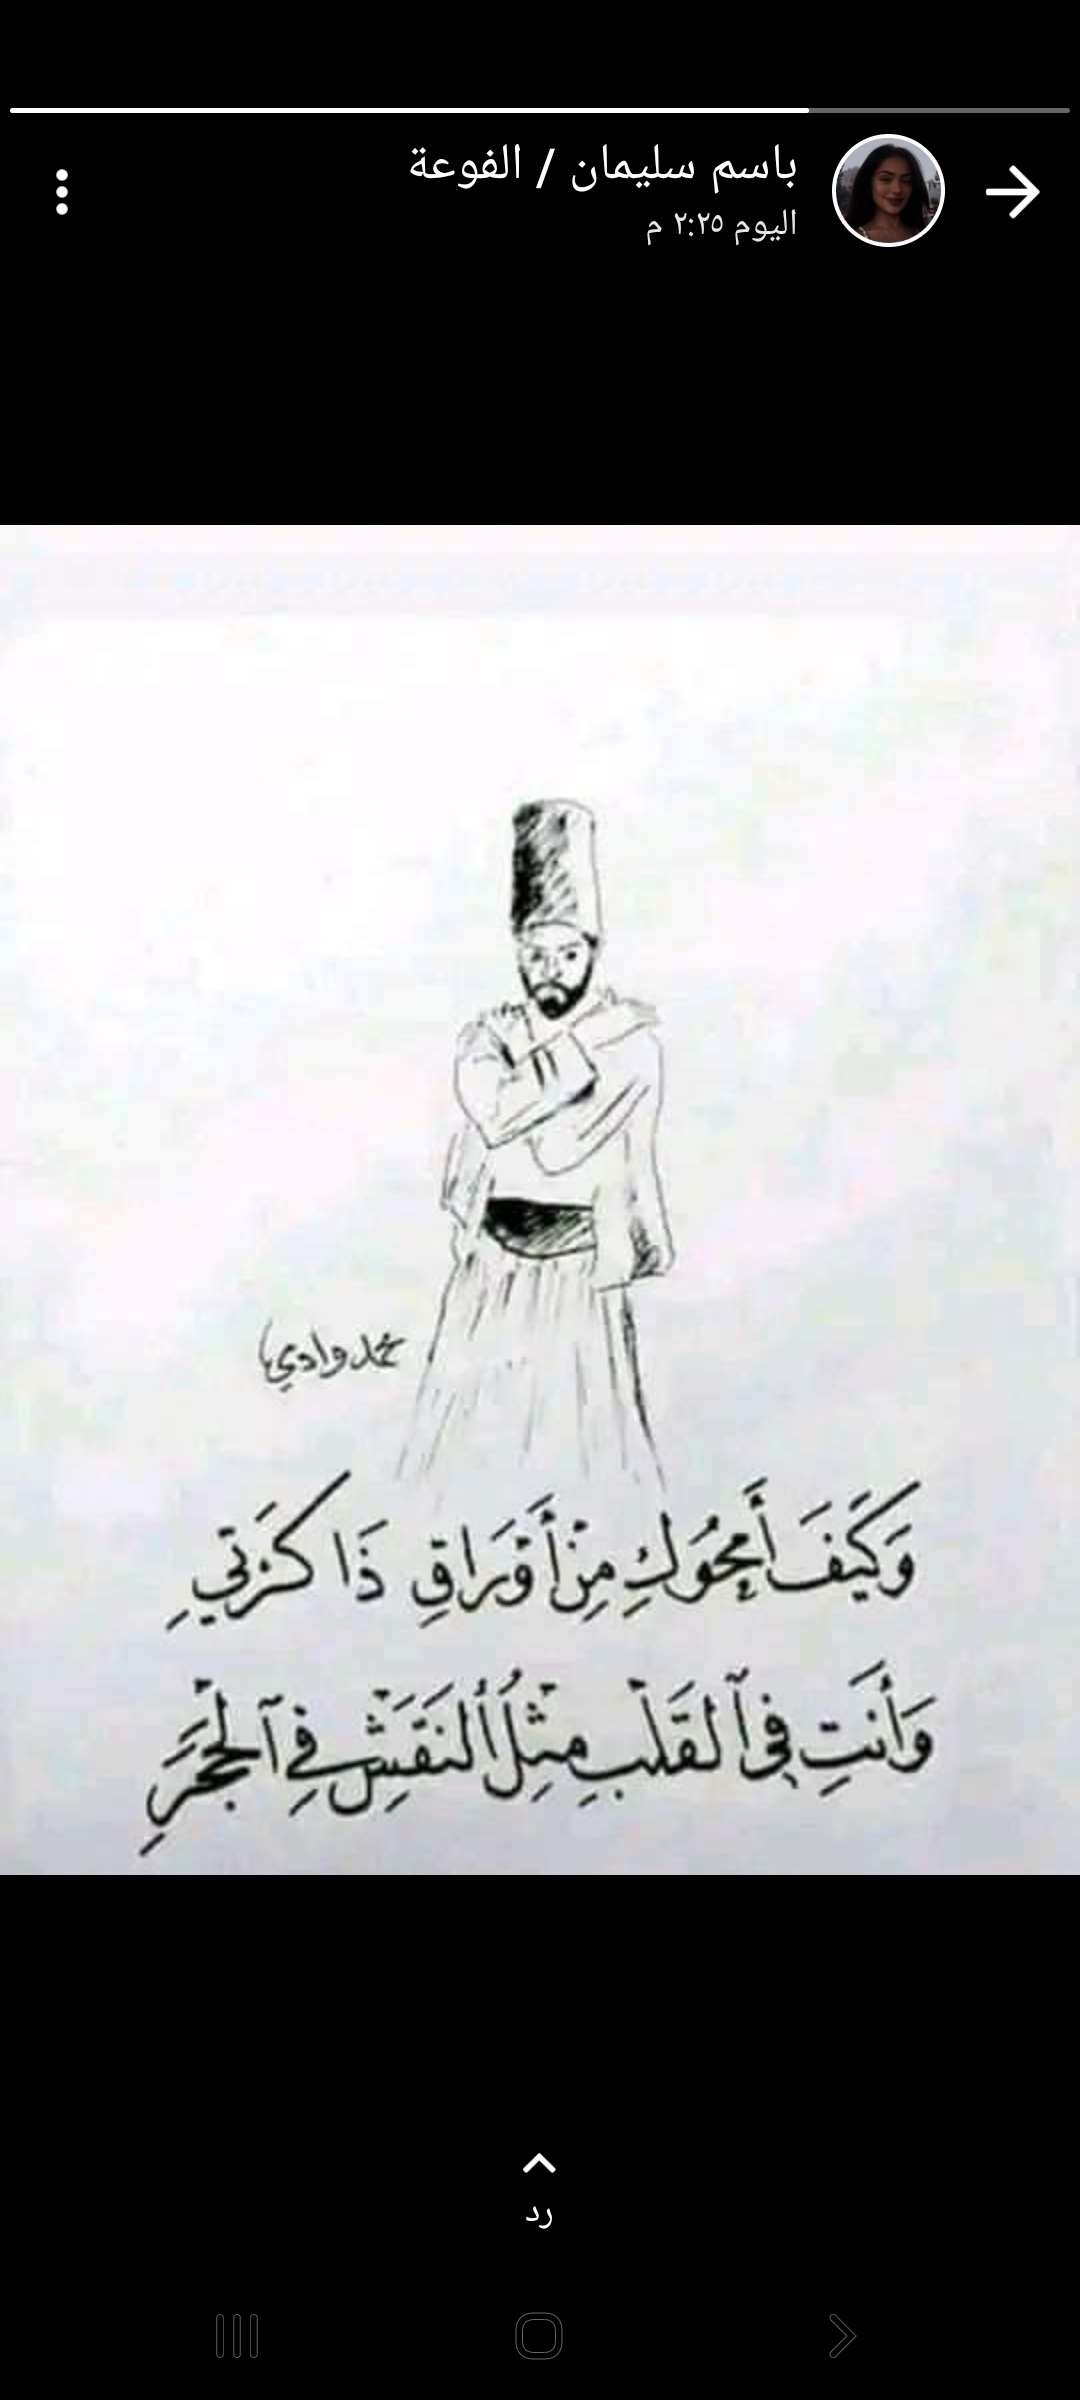 باسم سليمان / الفوعة
اليوم ٢:٢٥ م
محمد وادي
وَكَيْفَ أَمْحُوكِ مِنْ أَوْرَاقِ ذَاكَرَتِي
وَأَنتِ فِي ٱلقَلْبِ مِثْلُ ٱلنَقَشِ فِي ٱلحَجَرِ
رد